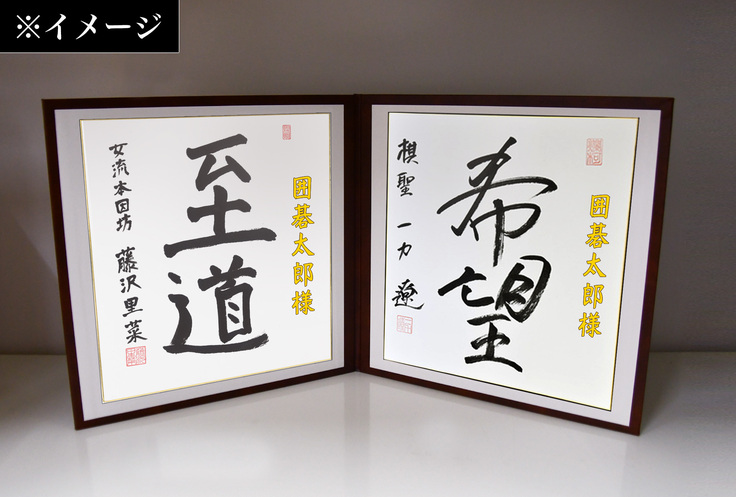 ※イメージ
囲碁太郎様
希望
棋聖 一力 遼
囲碁太郎様
至道
女流本因坊 藤沢里菜